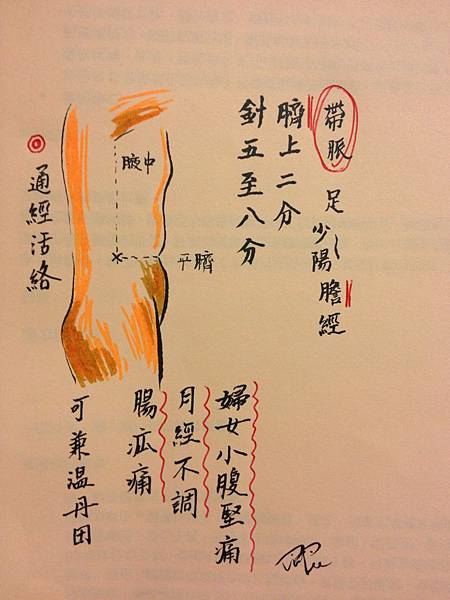 帶脈 足少陽膽經
臍上二分
針五至八分
腋中
平臍
通經活絡
婦女小腹堅痛
月經不調
腸疝痛
可兼温丹田